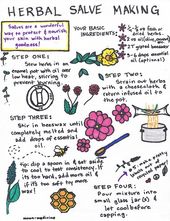 HERBAL SALVE MAKING
Salves are a wonderful
way to protect & nourish
your skin with herbal
goodness!
YOUR BASIC
INGREDIENTS:
dried herbs
STEP ONE:
Stew herbs in an
enamel pot with oil over
low heat, stirring to
prevent burning
STEP TWO:
Strain out herbs
with a cheesecloth, &
return infused oil to
the pot.
STEP THREE:
Stir in beeswax until
completely melted and
add drops of essential
oil.
tip: dip a spoon in & set aside
to cool to test consistency. If
it's too hard, add more oil &
if it's too soft try more
wax!
STEP FOUR:
Pour mixture into
small glass jar(s) &
let cool before
capping.